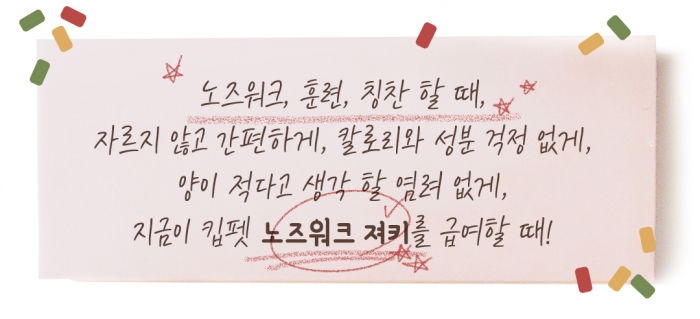 노즈워크, 훈련, 칭찬 할 때,
자르지 않고 간편하게, 칼로리와 성분 걱정 없게,
양이 적다고 생각 할 염려 없게,
지금이 킵펫 노즈워크 져키를 급여할 때!